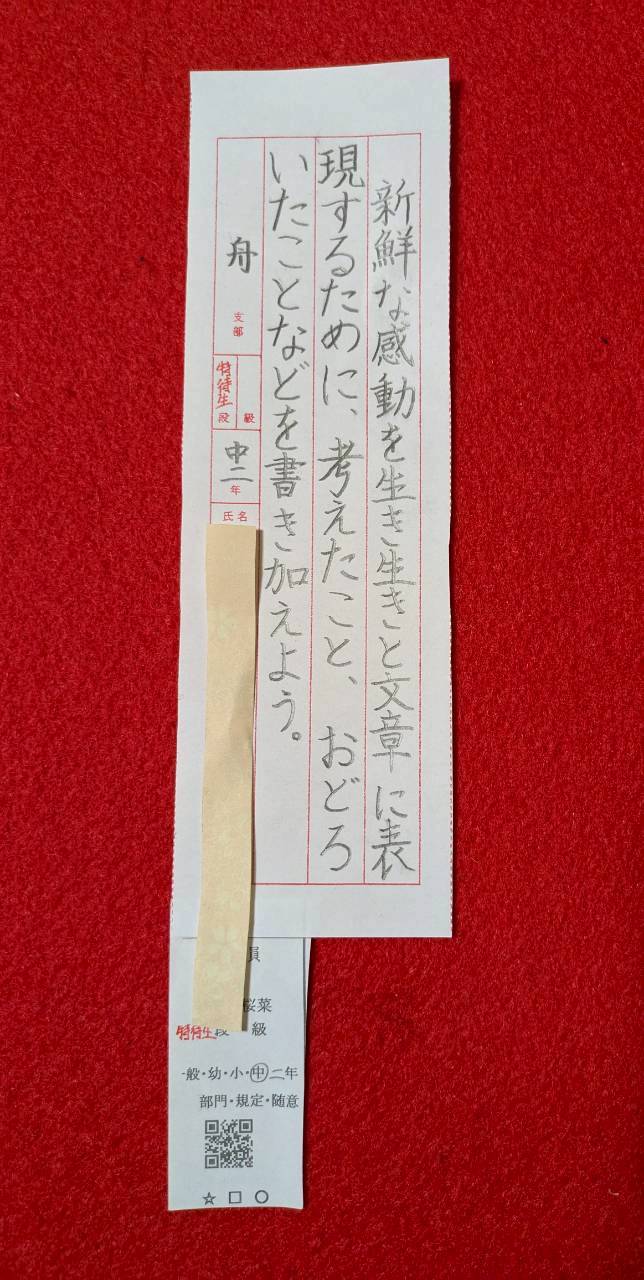 新鮮な感動を生き生きと文章に表
現するために、考えたこと、おどろ
いたことなどを書き加えよう。
舟
支部
特待生
段
級
中二
年
氏名
員
桜菜
特待生段 級
般・幼・小・中二年
部門・規定・随意
☆ □ ○